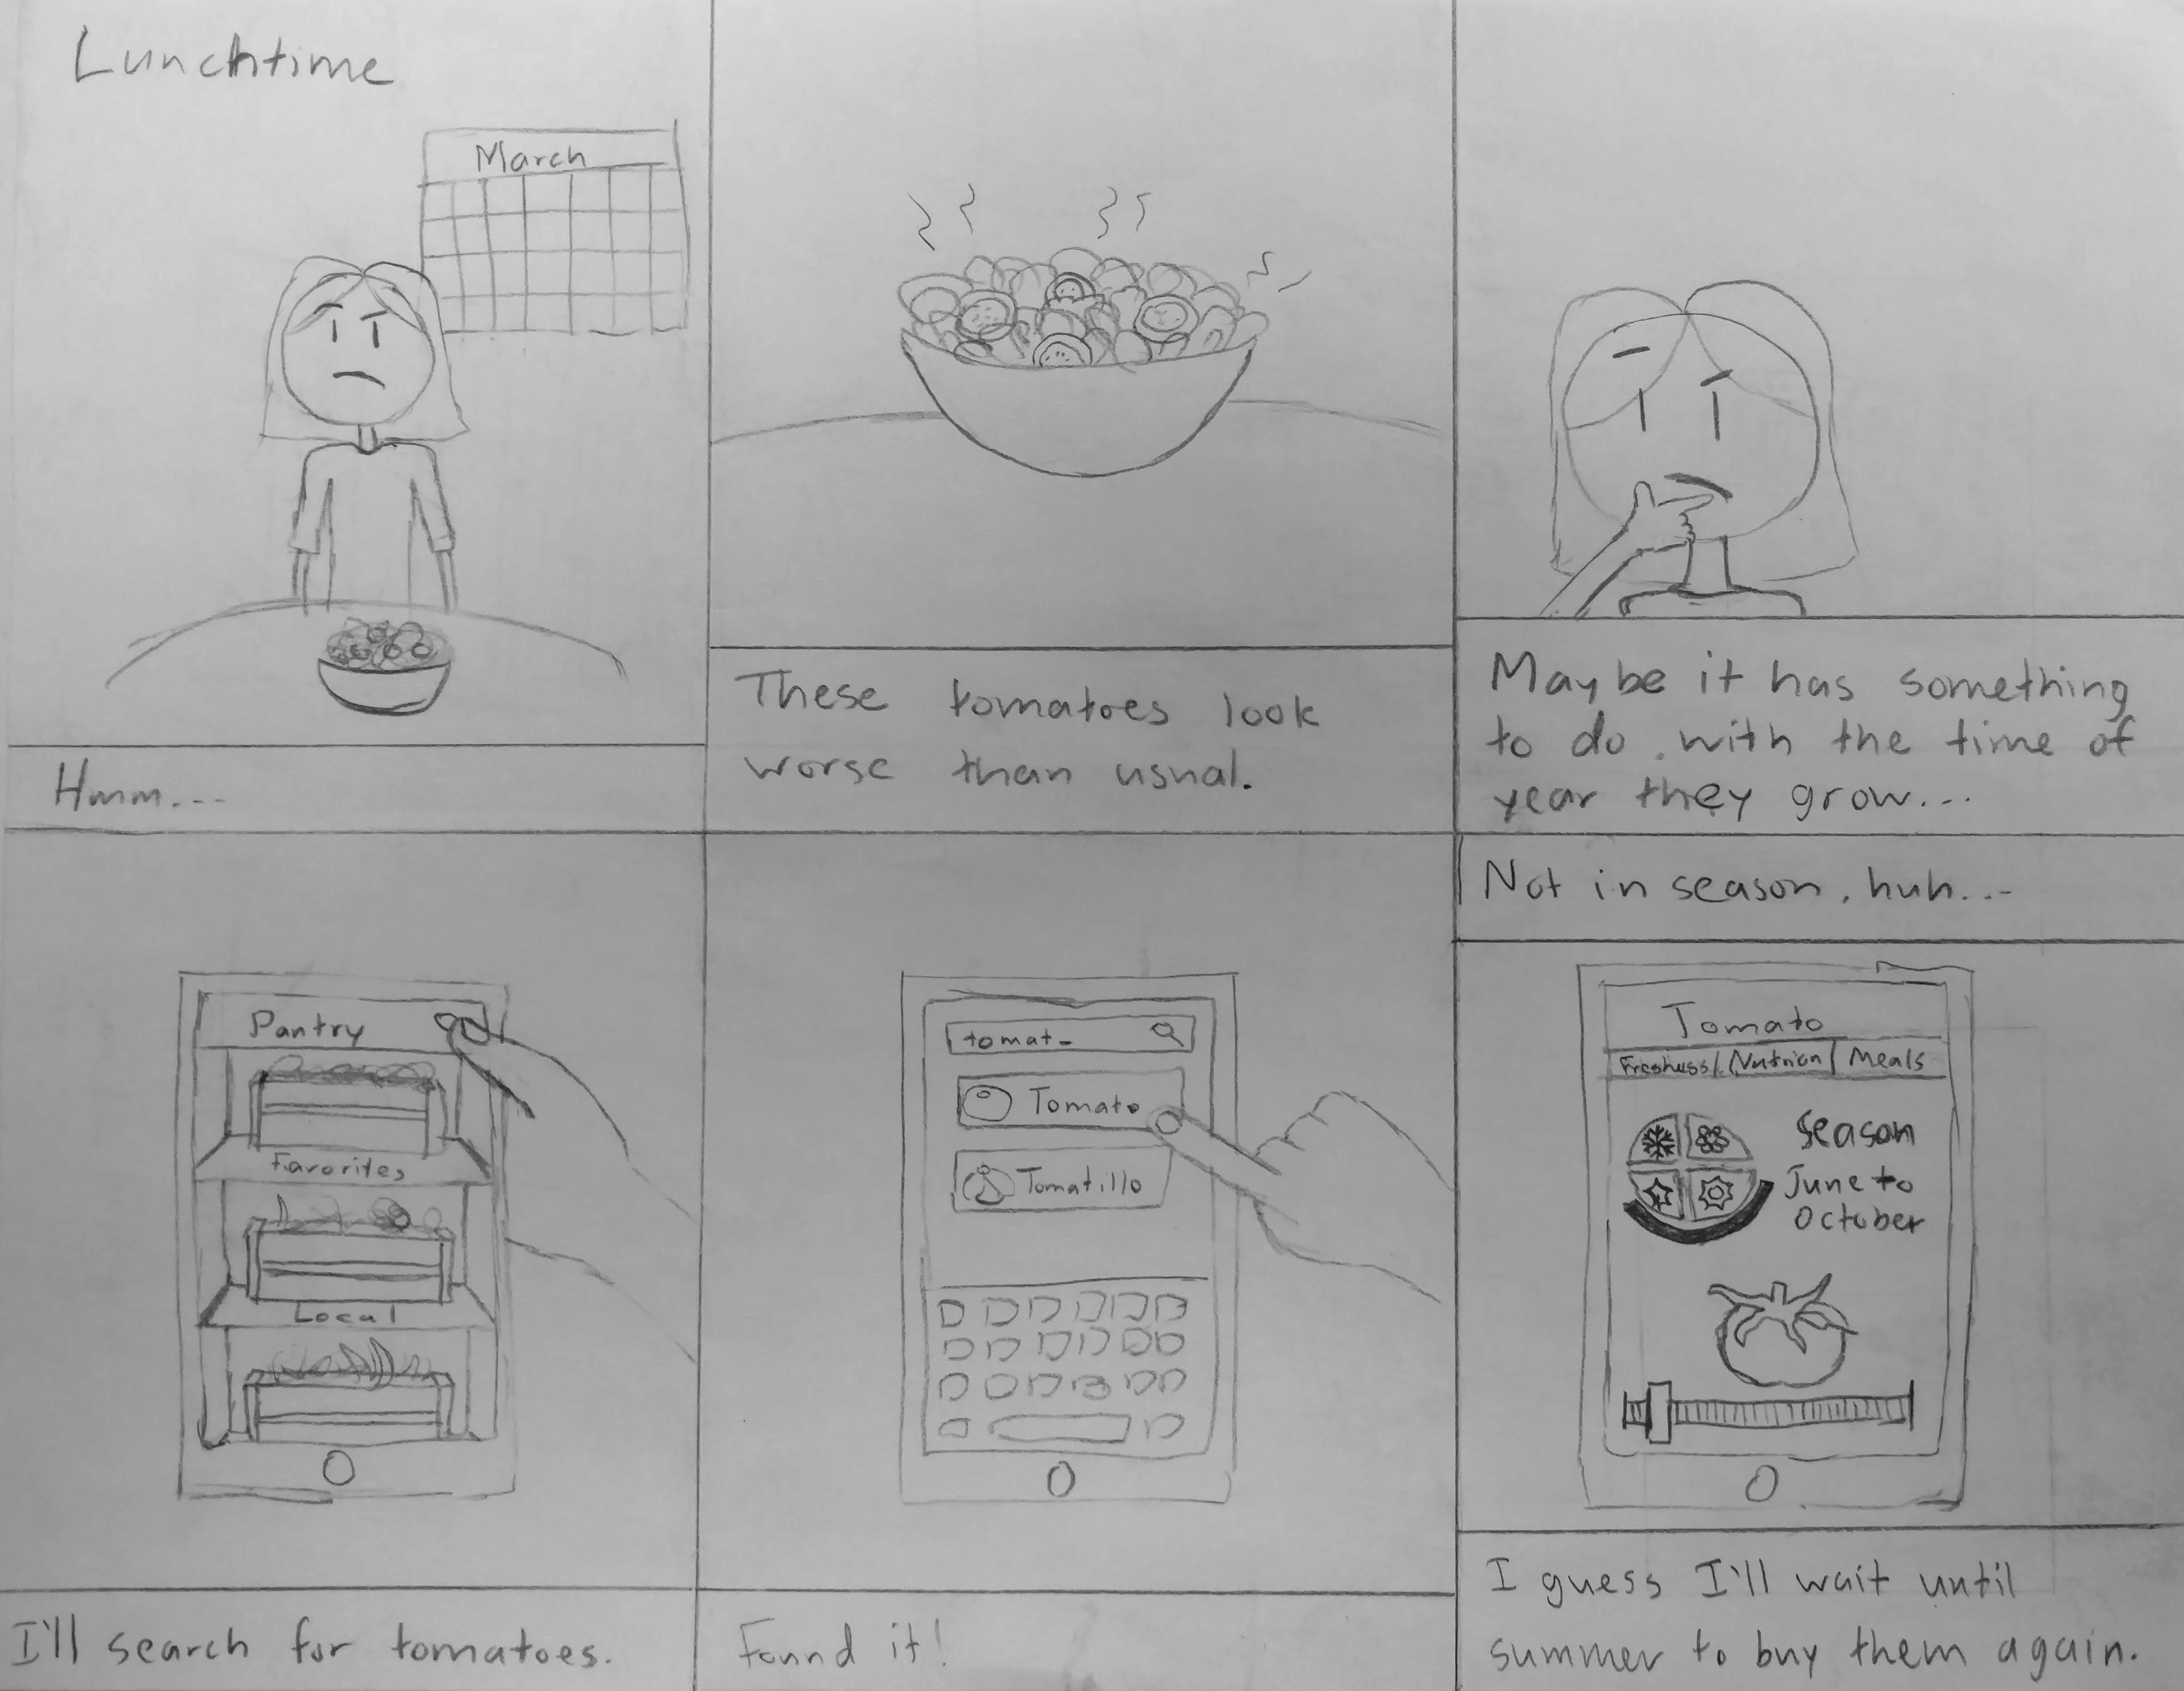 Lunchtime
March
Hmm...
These tomatoes look
worse than usual.
Maybe it has something
to do with the time of
year they grow...
Pantry
Favorites
Local
I'll search for tomatoes.
tomat_
Tomato
Tomatillo
Found it!
Not in season, huh...
Tomato
Freshness Nutrion Meals
Season
June to
October
I guess I'll wait until
summer to buy them again.